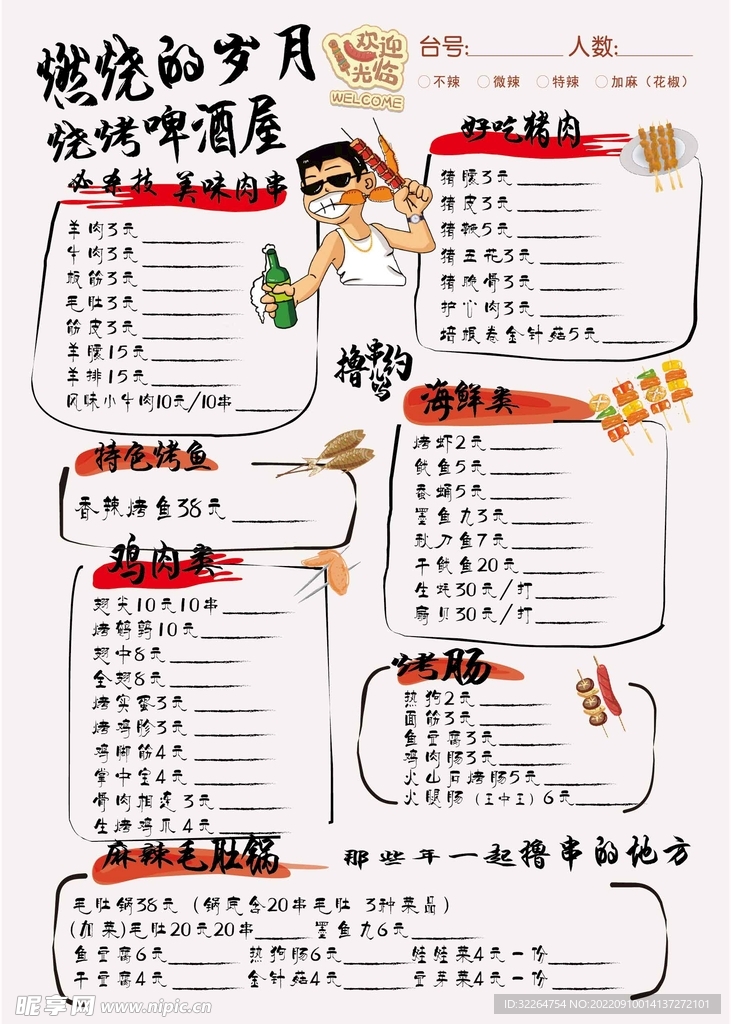 燃烧的岁月
烧烤啤酒屋
欢迎光临
WELCOME
台号: 人数:
不辣 微辣 特辣 加麻（花椒）
必杀技 美味肉串
羊肉3元
牛肉3元
板筋3元
毛肚3元
筋皮3元
羊腰15元
羊排15元
风味小牛肉10元/10串
好吃猪肉
猪腰3元
猪皮3元
猪鞭5元
猪五花3元
猪脆骨3元
护心肉3元
培根卷金针菇5元
撸串儿约吗
特色烤鱼
香辣烤鱼38元
海鲜类
烤虾2元
鱿鱼5元
蚕蛹5元
墨鱼丸3元
秋刀鱼7元
干鱿鱼20元
生蚝30元/打
扇贝30元/打
鸡肉类
翅尖10元10串
烤鹌鹑10元
翅中8元
全翅8元
烤实蛋3元
烤鸡胗3元
鸡脚筋4元
掌中宝4元
骨肉相连3元
生烤鸡爪4元
烤肠
热狗2元
面筋3元
鱼豆腐3元
鸡肉肠3元
火山石烤肠5元
火腿肠（王中王）6元
麻辣毛肚锅 那些年一起撸串的地方
毛肚锅38元（锅底含20串毛肚 3种菜品）
(加菜)毛肚20元20串 墨鱼丸6元
鱼豆腐6元 热狗肠6元 娃娃菜4元一份
干豆腐4元 金针菇4元 豆芽菜4元一份
昵享网 www.nipic.cn
ID:32264754 NO:20220910014137272101